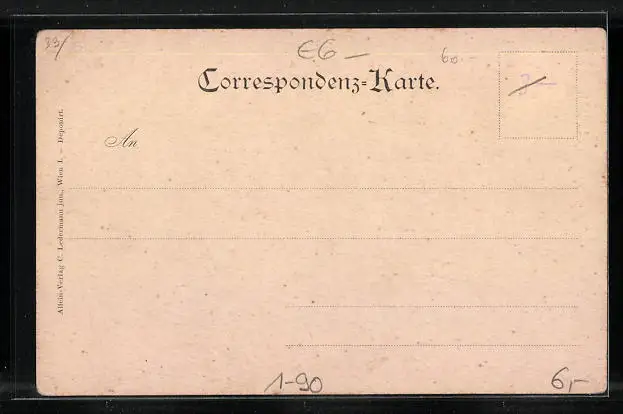 33/
€6 —
60.-
Correspondenz=Karte.
3-
An
Allein-Verlag C. Ledermann jun., Wien I. – Deponirt.
1-90
6,-